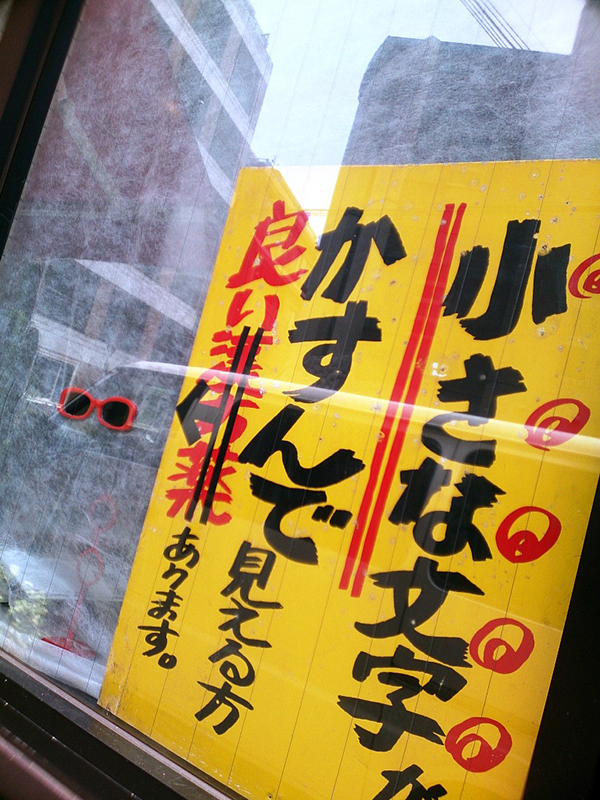 小さな文字が
かすんで見える方
良い漢方薬あります。